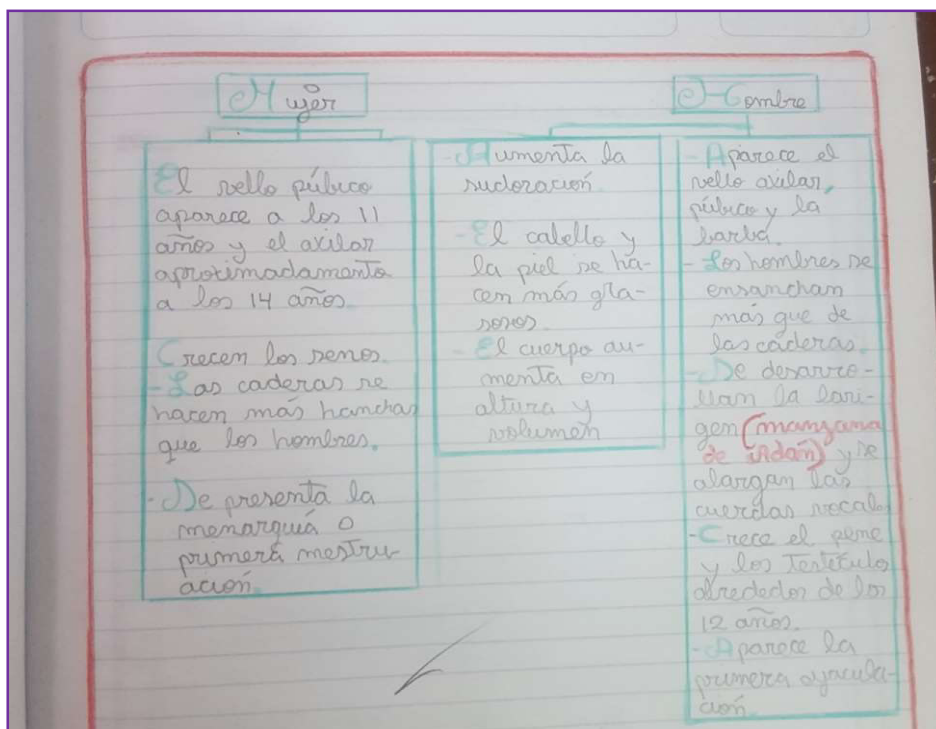 Mujer
El vello púbico
aparece a los 11
años y el axilar
aproximadamente
a los 14 años.
Crecen los senos.
-Las caderas se
hacen más hanchas
que los hombres.
-Se presenta la
menarquiá o
primera mestru-
ación.
-Aumenta la
sudoración.
-El cabello y
la piel se ha-
cen más gra-
sosos.
-El cuerpo au-
menta en
altura y
volumen
Hombre
-Aparece el
vello axilar,
púbico y la
barba.
-Los hombres se
ensanchan
más que de
las caderas.
-Se desarro-
llan la lari-
gen (manzana
de Adan) y se
alargan las
cuerdas vocales
-Crece el pene
y los Testículos
alrededor de los
12 años.
-Aparece la
primera eyacula-
ción.